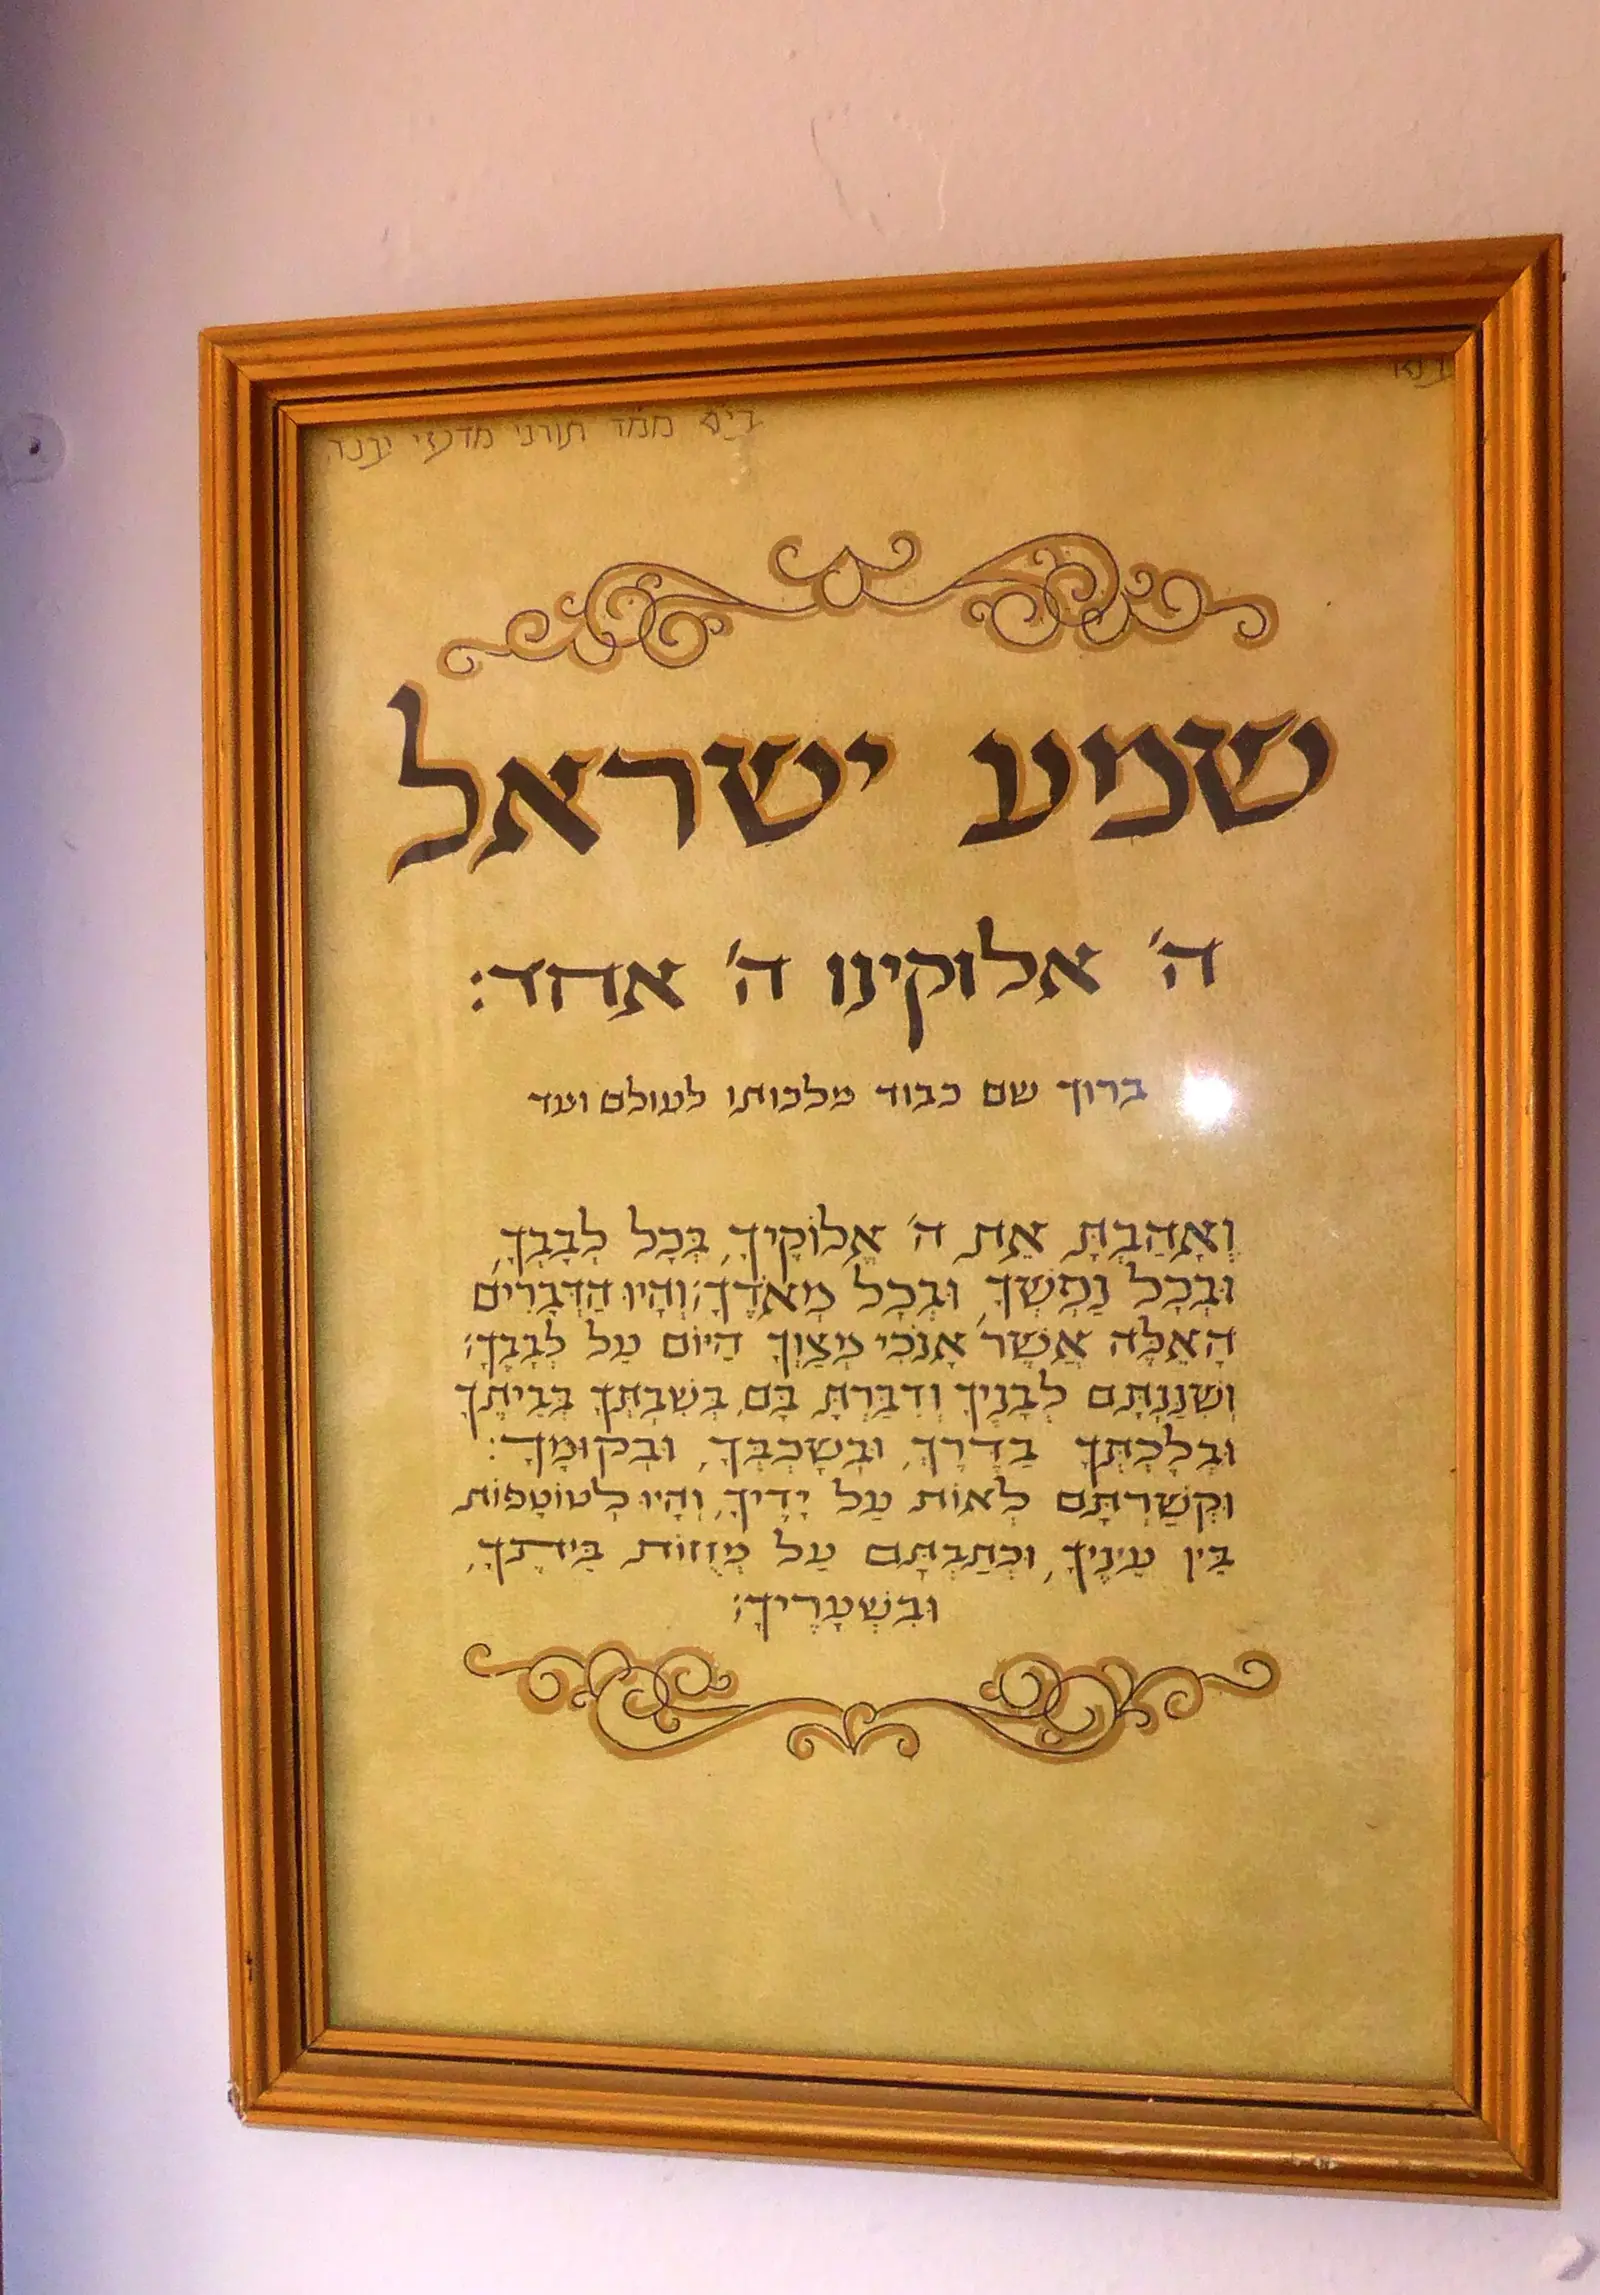 בי"ס ממ"ד תורני מדעי יבנה
שמע ישראל
ה' אלוקינו ה' אחד:
ברוך שם כבוד מלכותו לעולם ועד
וְאָהַבְתָּ אֵת ה' אֱלוֹקֶיךָ, בְּכָל לְבָבְךָ,
וּבְכָל נַפְשְׁךָ, וּבְכָל מְאֹדֶךָ: וְהָיוּ הַדְּבָרִים
הָאֵלֶּה אֲשֶׁר אָנֹכִי מְצַוְּךָ הַיּוֹם עַל לְבָבֶךָ:
וְשִׁנַּנְתָּם לְבָנֶיךָ וְדִבַּרְתָּ בָּם, בְּשִׁבְתְּךָ בְּבֵיתֶךָ
וּבְלֶכְתְּךָ בַדֶּרֶךְ, וּבְשָׁכְבְּךָ, וּבְקוּמֶךָ:
וּקְשַׁרְתָּם לְאוֹת עַל יָדֶיךָ, וְהָיוּ לְטוֹטָפוֹת
בֵּין עֵינֶיךָ, וּכְתַבְתָּם עַל מְזֻזוֹת בֵּיתֶךָ,
וּבִשְׁעָרֶיךָ: